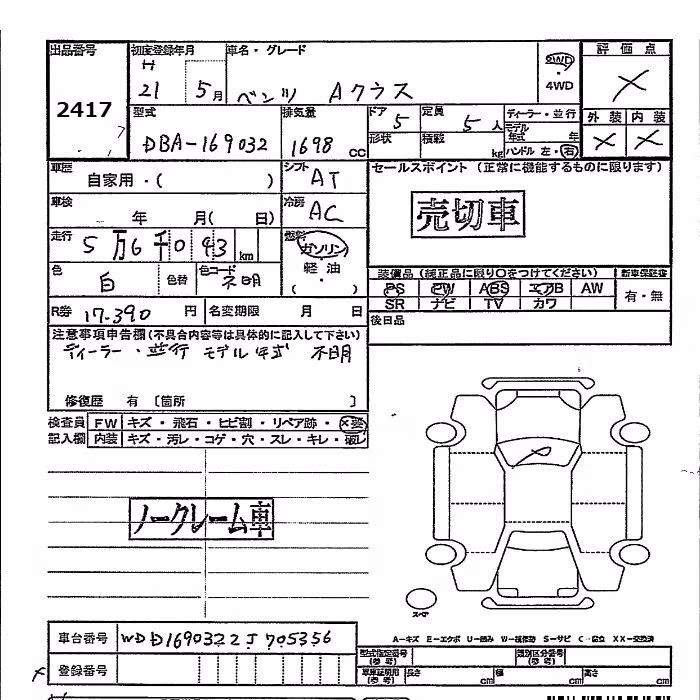 出品番号 初度登録年月 車名・グレード 評価点
2417 H 21 5月 ベンツ Aクラス 2WD・4WD ×
型式 DBA-169032 排気量 1698 cc ドア 5 定員 5人 ディーラー・並行 外装 内装
形状 積載 kg モデル年式 年 ハンドル 左・右 × ×
車歴 自家用・( ) シフト AT セールスポイント (正常に機能するものに限ります)
車検 年 月( 日) 冷房 AC 売切車
走行 5万6千043 km 燃料 ガソリン・軽油・( )
色 白 色替 色コード 不明 装備品 (純正品に限り○をつけてください) 新車保証書
PS PW ABS エアB AW 有・無
SR ナビ TV カワ
R券 17.390 円 名変期限 月 日 後日品
注意事項申告欄(不具合内容等は具体的に記入して下さい)
ディーラー・並行 モデル年式 不明
修復歴 有 〔箇所 〕
検査員 FW キズ・飛石・ヒビ割・リペア跡・×要
記入欄 内装 キズ・汚レ・コゲ・穴・スレ・キレ・破レ
ノークレーム車
スペア
A−キズ E−エクボ U−凹み W−補修跡 S−サビ C−腐食 XX−交換済
車台番号 WDD1690322J705356 型式指定番号(参考) 類別区分番号(参考)
登録番号 車庫証明用(参考) 長さ cm 幅 cm 高さ cm